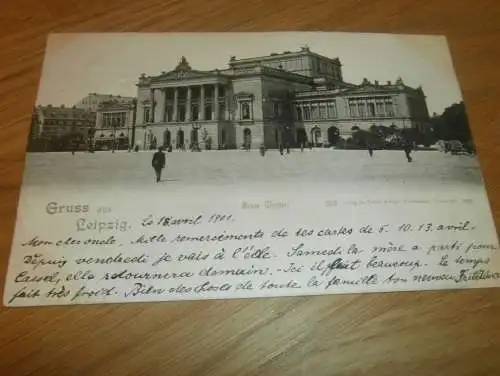 Gruss aus
Leipzig.
Le 18 avril 1901.
Mon cher oncle, Mille remerciements de tes cartes de 5. 10. 13. avril.
Depuis vendredi je vais à l'école. Samedi la mère a parti pour
Cassel, elle retournera demain. – Ici il pleut beaucoup. Le temps
fait très froid. Bien des choses de toute la famille ton neveu